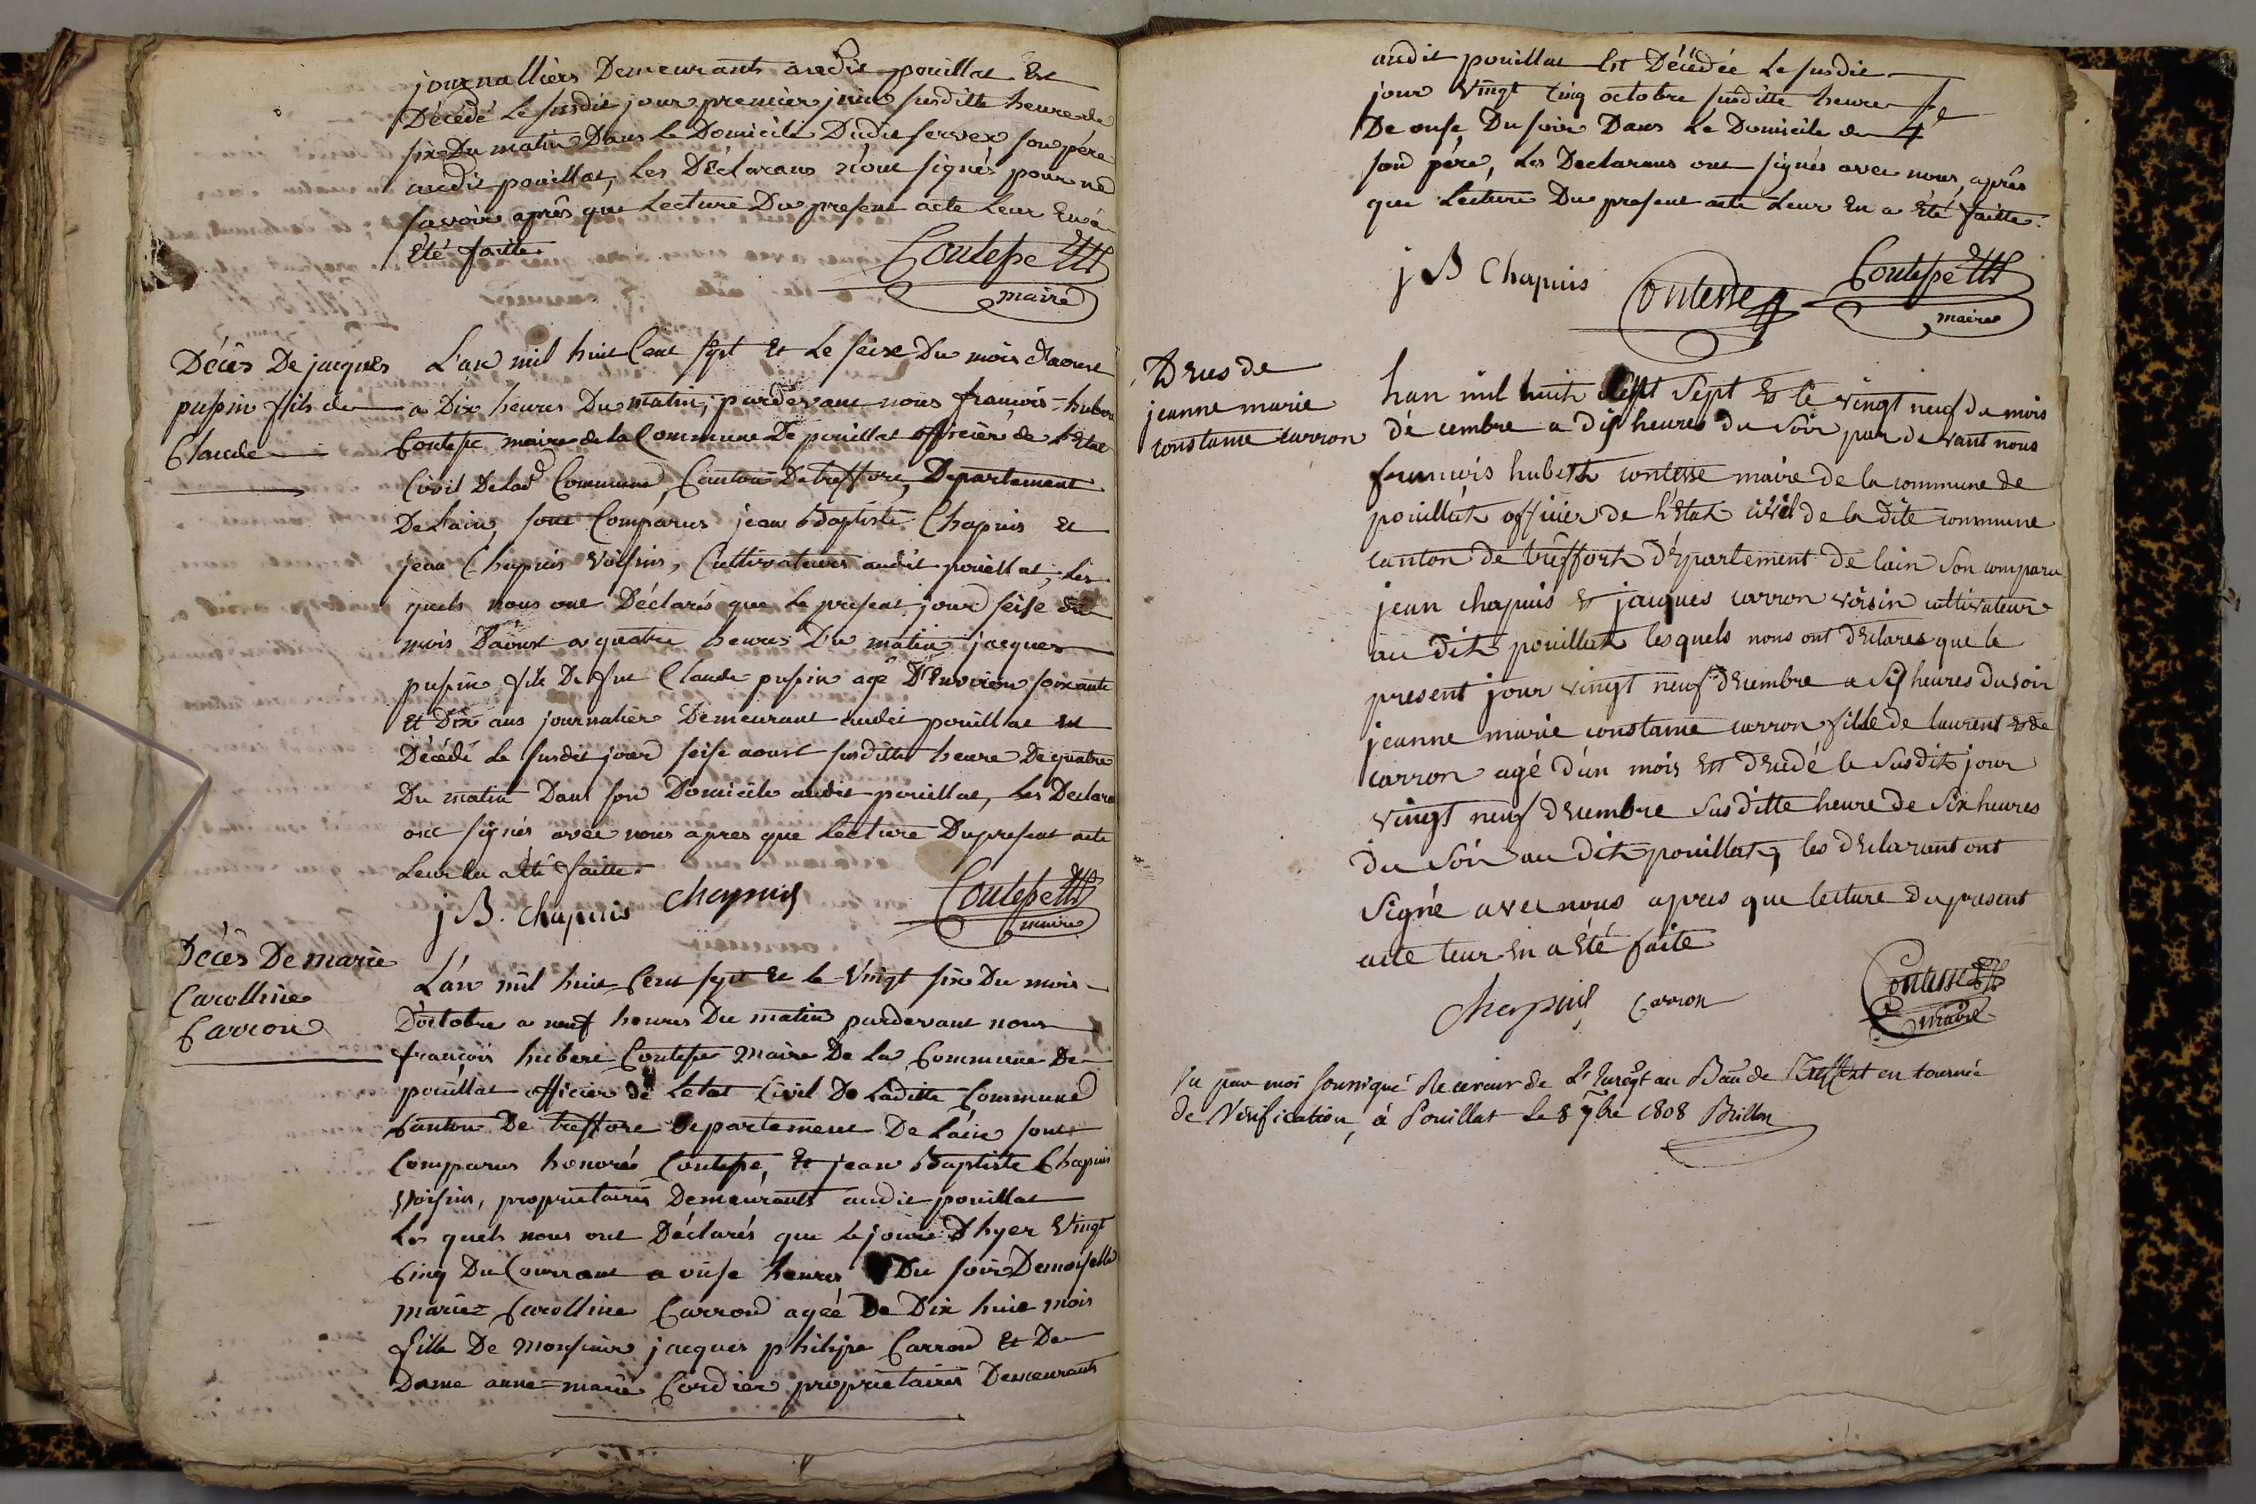 journalliers Demeurants audit pouillat Est
Décédé le susdit jour premier juin susditte heure de
six Du matin Dans le Domicile Dudit servex son pére
audit pouillat, Les Déclarans n'ont signés pour ne
savoir aprês que Lecture Du present acte Leur En a
Eté faitte
Contesse
maire
Décês De jacques
pupin fils de
Claude
L'an mil huit Cent sept Et Le seise Du mois d'aoust
a Dix heures Du matin, pardevant nous françois-hubert
Contesse maire de la Commune De pouillat officier de L'Etat
Civil De lad Commune, Canton De treffort, Departement
De Lain, sont Comparus jean Baptiste Chapuis Et
jean Chapuis voisins, Cultivateurs audit pouillat, Les
quels nous ont Déclarés que Le present jour seise du
mois D'aoust a quatre heures Du matin jacques
pupin fils De feu Claude pupin agé D'Environ soixante
Et Dix ans journalier Demeurant audit pouillat est
Décédé Le susdit jour seise aoust susditte heure De quatre
Du matin Dans son Domicile audit pouillat, Les Declarans
ont signés avec nous apres que Lecture Du present acte
Leur En a Eté faitte
j B. Chapuis chapuis Contesse
maire
Décês De marie
Carolline
Carron
L'an mil huit Cent sept Et le Vingt six Du mois
D'octobre a neuf heures Du matin pardevant nous
françois hubert Contesse Maire De La Commune De
pouillat officier de Letat Civil De Laditte Commune
Canton De treffort Departement De Lain sont
Comparus honoré Contesse, Et jean Baptiste Chapuis
voisins, proprietaires Demeurants audit pouillat
Les quels nous ont Déclarés que Le jour D'hyer Vingt
Cinq Du Courrant a onse heures Du soir Demoiselle
marie-Carolline Carron agéé De Dix huit mois
fille De Monsieur jacques philipe Carron Et De
Dame anne-marie Cordier proprietaires Demeurants
audit pouillat Est Décédée Le susdit
jour Vingt Cinq octobre susditte heure
De onse Du soir Dans Le Domicile de
son pére, Les Declarans ont signés avec nous, aprês
que Lecture Du present acte Leur En a Eté faitte.
j B Chapuis Contesse Contesse
maire
Deces de
jeanne marie
constance carron
Lan mil huit sept Et le vingt neuf du mois
décembre a dix heures du Soir par devant nous
francois hubert contesse maire de la commune de
pouillat officier de l'Etat civil de la dite commune
canton de treffort département de lain Son comparu
jean chapuis Et jacques carron voisin cultivateur
au dit pouillat lesquels nous ont declares que le
present jour vingt neuf decembre a six heures du soir
jeanne marie constance carron fille de laurent Et de
carron agé d'un mois Est decédé le Susdit jour
vingt neuf decembre Sus ditte heure de Six heures
du Soir au dit pouillat, les declarant ont
Signé avec nous apres que lecture du present
acte leur En a Eté faite
chapuis carron Contesse
maire
Vu par moi soussigné Receveur de L'Enregt au Bau de Treffort en tournée
de Vérification, à Pouillat le 8 7bre 1808 Brillon